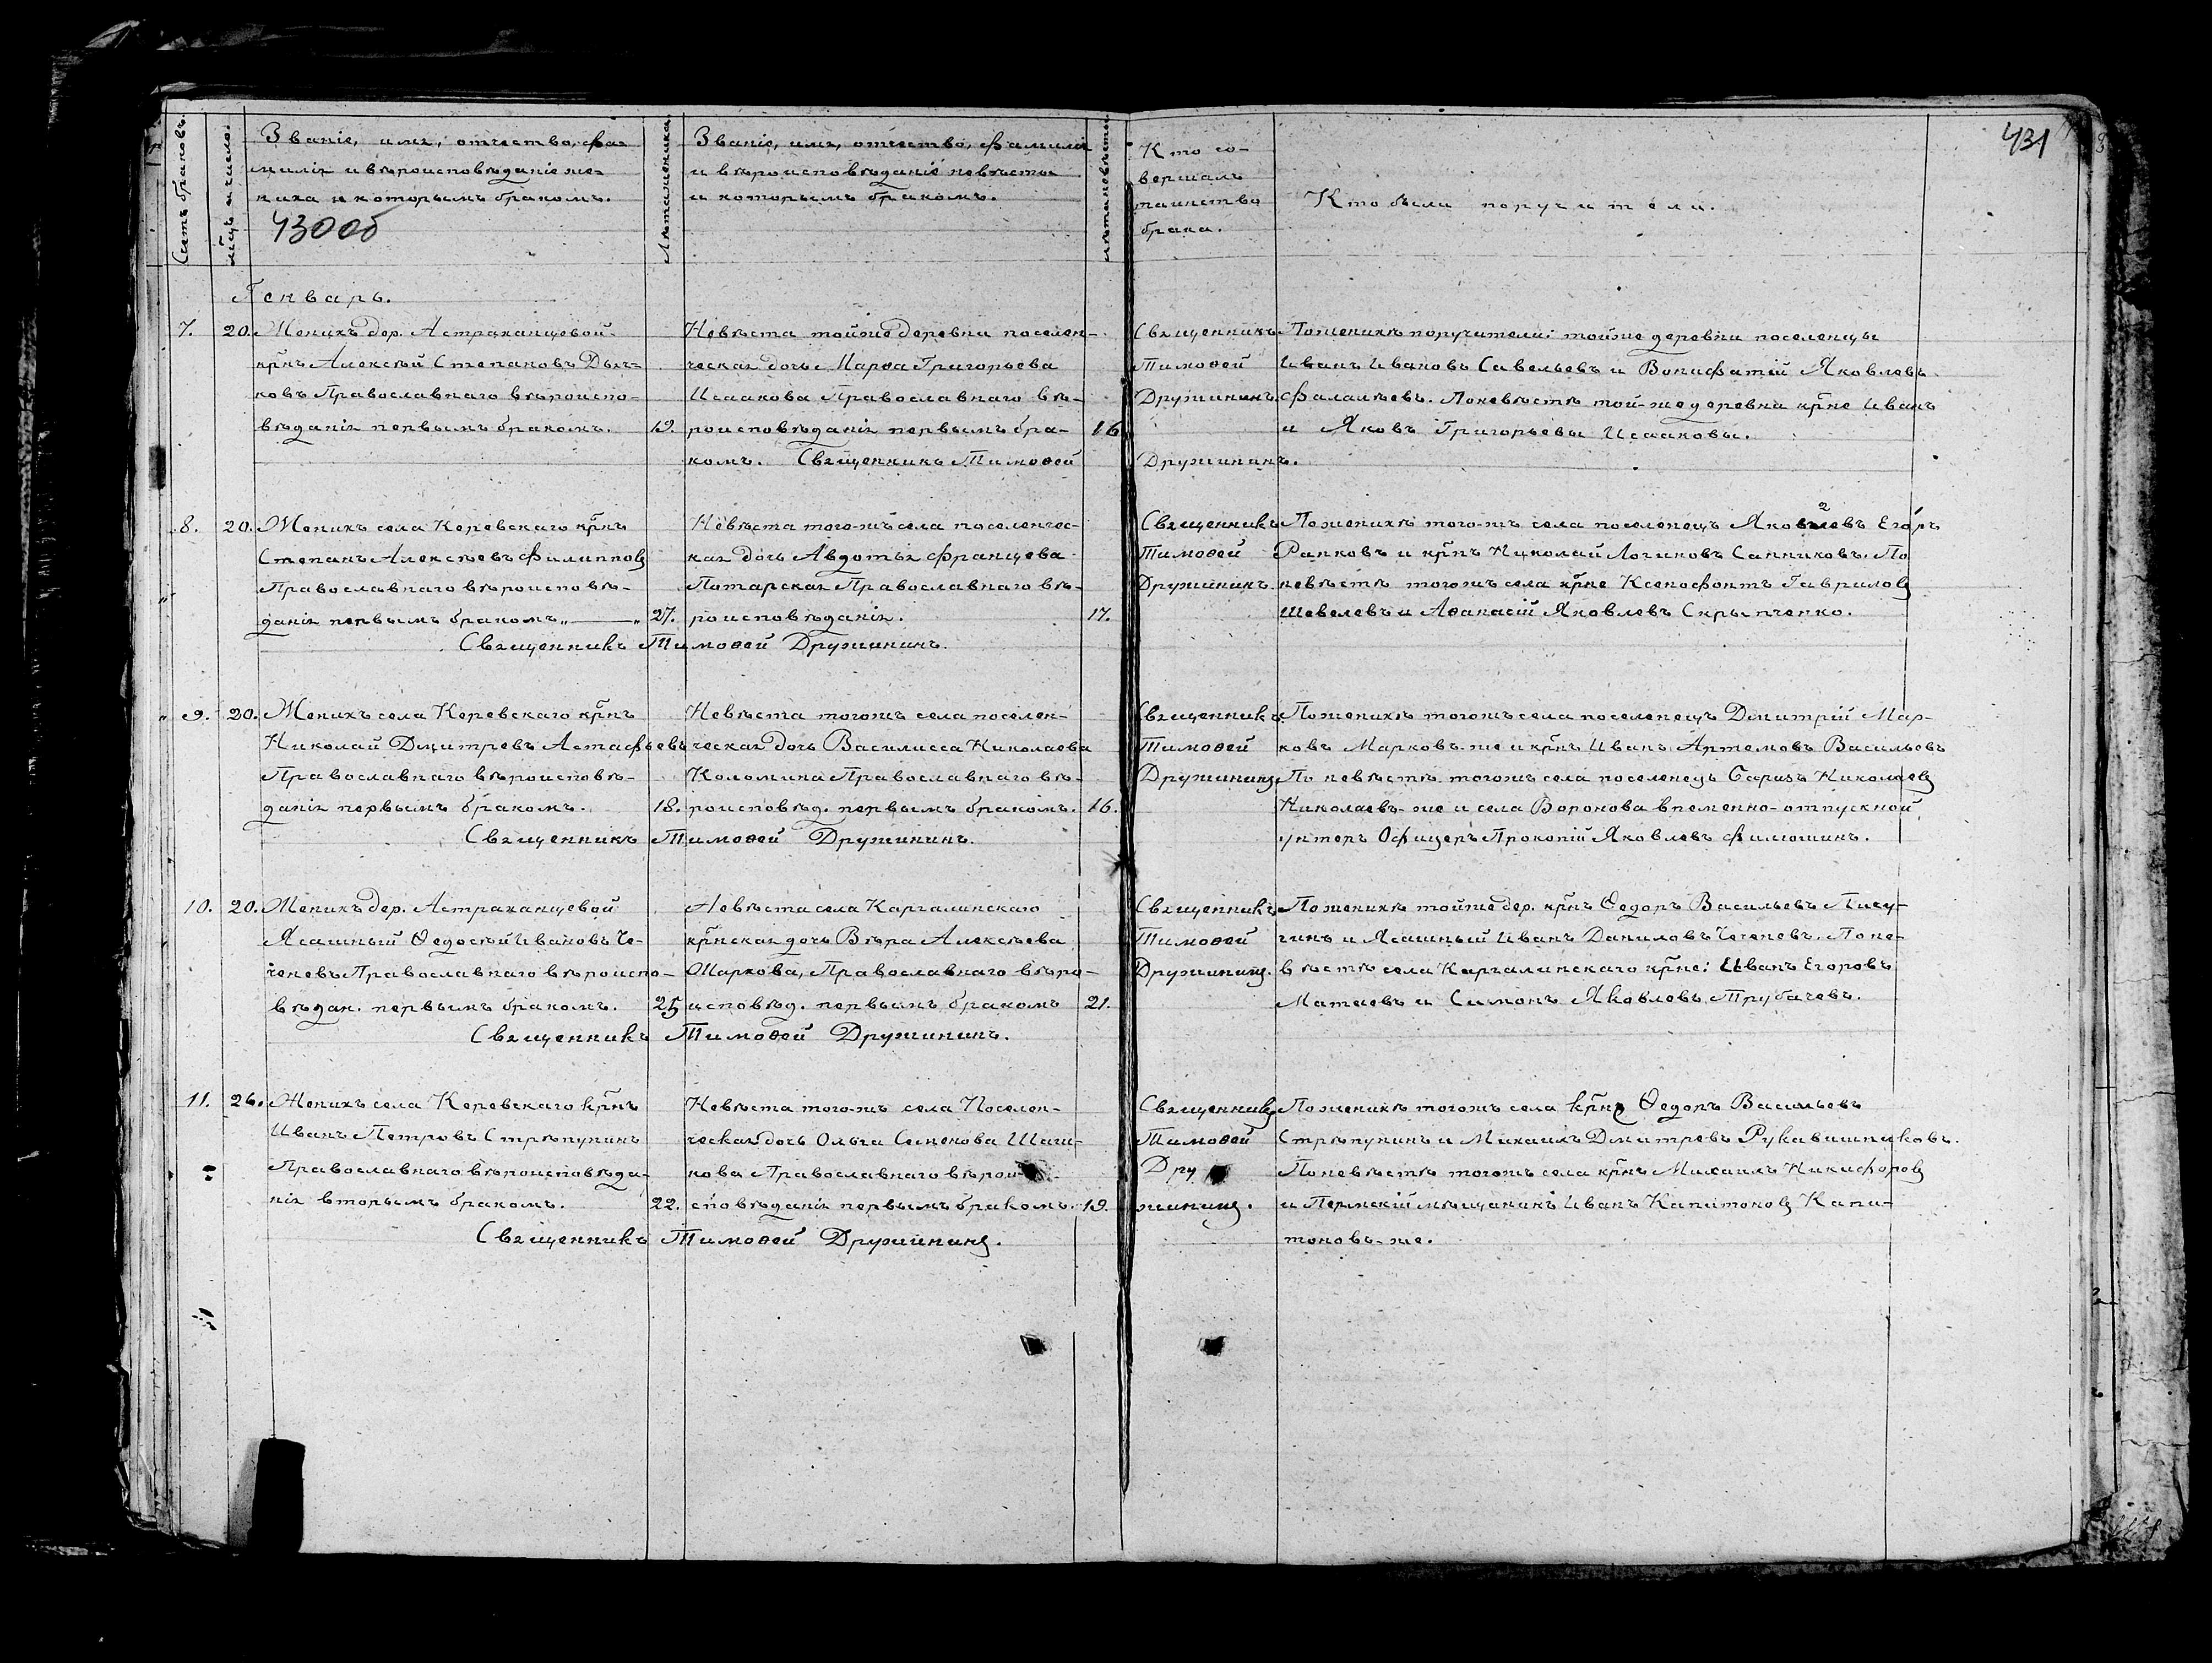 431
Счетъ браковъ.
М̃цъ и число.
Званіе, имя, отчество, фа-
милія и вѣроисповѣданіе же-
ниха и которымъ бракомъ.
430об
Лѣта жениха.
Званіе, имя, отчество, фамилія
и вѣроисповѣданіе невѣсты
и которымъ бракомъ.
Лѣта невѣсты.
Кто со-
вершалъ
таинство
брака.
Кто были поручители.
Генварь.
7. 20. Женихъ дер. Астраханцевой
кр̃нъ Алексѣй Степановъ
ковъ Православнаго вѣроиспо-
вѣданія первымъ бракомъ. 19.
Невѣста тойже деревни поселен-
ческая дочь Марѳа Григорьева
Исаакова Православнаго вѣ-
роисповѣданія первымъ бра- 16
комъ. Священникъ Тимоѳей Дружининъ.
Священникъ
Тимоѳей
Дружининъ.
По женихѣ поручители: тойже деревни поселенцы
Иванъ Ивановъ Савельевъ и Вонифатій Яковлевъ
Фалалѣевъ. По невѣстѣ той-же деревни кр̃не Иванъ
и Яковъ Григорьевы Исааковы.
8. 20. Женихъ села Керевскаго кр̃нъ
Степанъ Алексѣевъ Филипповъ
Православнаго вѣроисповѣ-
данія первымъ бракомъ „ — „ 27.
Невѣста того-жъ села поселенчес-
кая дочь Авдотья Францева
Потарская Православнаго вѣ-
роисповѣданія. 17.
Священникъ Тимоѳей Дружининъ.
Священникъ
Тимоѳей
Дружининъ.
По женихѣ того-жъ села поселенецъ Яковлевъ 2 Егоръ
Ранковъ и кр̃нъ Николай Логиновъ Санниковъ. По
невѣстѣ тогожъ села кр̃не Ксенофонтъ Гавриловъ
Шевелевъ и Аѳанасій Яковлевъ Скрыпченко.
9. 20. Женихъ села Керевскаго кр̃нъ
Николай Дмитревъ Астафьевъ
Православнаго вѣроисповѣ-
данія первымъ бракомъ. 18.
Невѣста тогожъ села поселен-
ческая дочь Василисса Николаева
Коломина Православнаго вѣ-
роисповѣд. первымъ бракомъ. 16.
Священникъ Тимоѳей Дружининъ.
Священникъ
Тимоѳей
Дружининъ.
По женихѣ тогожъ села поселенецъ Дмитрій Мар-
ковъ Марковъ-же и кр̃нъ Иванъ Артемовъ Васильевъ
По невѣстѣ тогожъ села поселенецъ Николаевъ
Николаевъ-же и села Воронова временно-отпускной
унтеръ Офицеръ Прокопій Яковлевъ Филюшинъ.
10. 20. Женихъ дер. Астраханцевой
Ясашный Ѳедосѣй Ивановъ Че-
ченевъ Православнаго вѣроиспо-
вѣдан. первымъ бракомъ. 25
Невѣста села Каргалинскаго
кр̃нская дочь Вѣра Алексѣева
Маркова, Православнаго вѣро-
исповѣд. первымъ бракомъ 21.
Священникъ Тимоѳей Дружининъ.
Священникъ
Тимоѳей
Дружининъ.
По женихѣ тойже дер. кр̃нъ Ѳедоръ Васильевъ Пичу-
гинъ и Ясашный Иванъ Даниловъ Чеченевъ. По не-
вѣстѣ села Каргалинскаго кр̃не: Иванъ Егоровъ
Матаевъ и Симонъ Яковлевъ Трубачевъ.
11. 26. Женихъ села Керевскаго кр̃нъ
Иванъ Петровъ Стрѣпунинъ
Православнаго вѣроисповѣда-
нія вторымъ бракомъ. 22.
Невѣста того-жъ села Поселен-
ческая дочь Ольга Семенова Шаги-
кова Православнаго вѣрои-
споведанія первымъ бракомъ. 19.
Священникъ Тимоѳей Дружининъ.
Священникъ
Тимоѳей
Дру
жининъ.
По женихѣ тогожъ села кр̃не Ѳедоръ Васильевъ
Стрѣпунинъ и Михаилъ Дмитревъ Рукавишниковъ.
По невѣстѣ тогожъ села кр̃нъ Михаилъ Никифоровъ
и Пермскій мѣщанинъ Иванъ Капитоновъ Капи-
тоновъ-же.